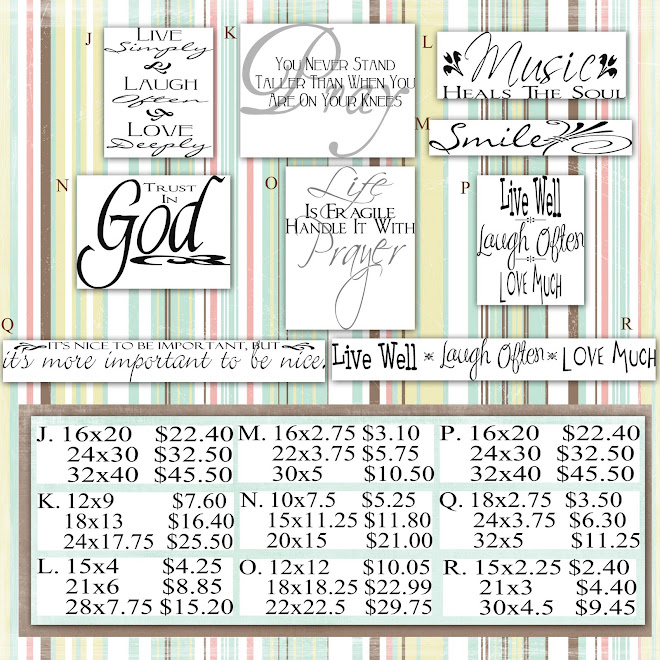 J
LIVE
Simply
LAUGH
Often
LOVE
Deeply
K
Pray
YOU NEVER STAND
TALLER THAN WHEN YOU
ARE ON YOUR KNEES
L
Music
HEALS THE SOUL
M
Smile
N
TRUST
IN
God
O
Life
IS FRAGILE
HANDLE IT WITH
Prayer
P
Live Well
Laugh Often
LOVE MUCH
Q
IT'S NICE TO BE IMPORTANT, BUT
it's more important to be nice.
R
Live Well Laugh Often LOVE MUCH
J. 16x20 $22.40
24x30 $32.50
32x40 $45.50
M. 16x2.75 $3.10
22x3.75 $5.75
30x5 $10.50
P. 16x20 $22.40
24x30 $32.50
32x40 $45.50
K. 12x9 $7.60
18x13 $16.40
24x17.75 $25.50
N. 10x7.5 $5.25
15x11.25 $11.80
20x15 $21.00
Q. 18x2.75 $3.50
24x3.75 $6.30
32x5 $11.25
L. 15x4 $4.25
21x6 $8.85
28x7.75 $15.20
O. 12x12 $10.05
18x18.25 $22.99
22x22.5 $29.75
R. 15x2.25 $2.40
21x3 $4.40
30x4.5 $9.45